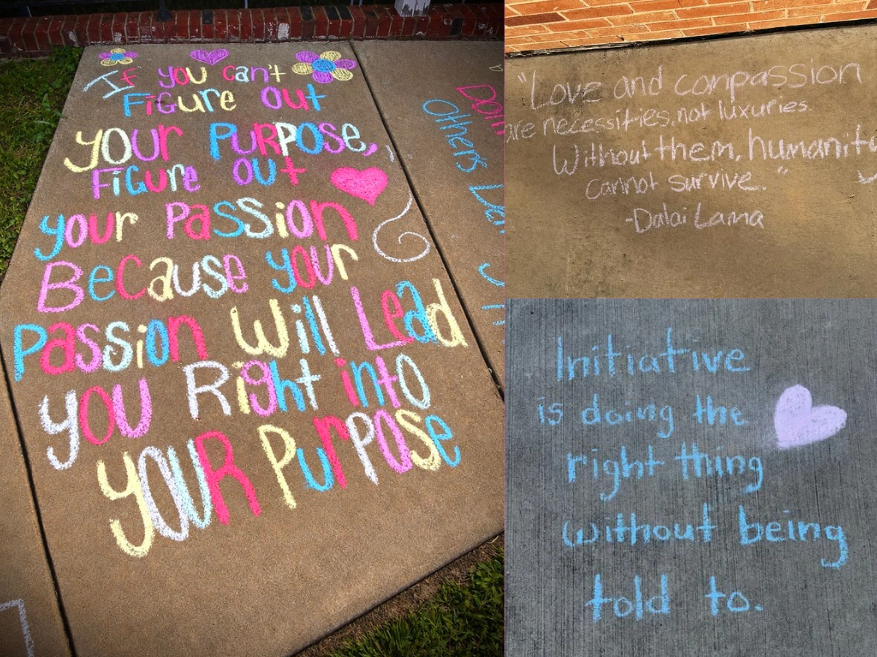 If you can't
Figure out
your PURPOSE,
Figure out
your Passion
Because your
Passion Will Lead
you Right into
YOUR Purpose
Others
"Love and compassion
are necessities, not luxuries.
Without them, humanity
cannot survive."
-Dalai Lama
Initiative
is doing the
right thing
without being
told to.